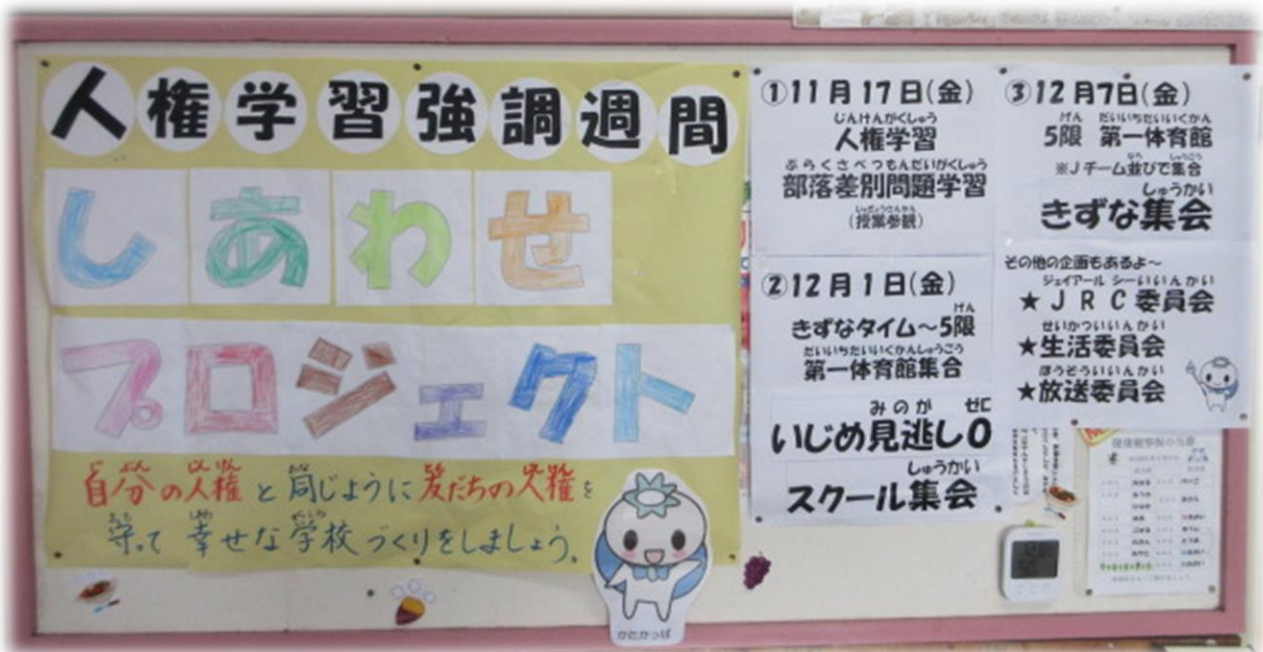 人権学習強調週間
しあわせ
プロジェクト
じぶん じんけん おな とも じんけん
自分の人権と同じように友だちの人権を
まも しあわ がっこう
守って幸せな学校づくりをしましょう。
かたかっぱ
①11月17日(金)
じんけんがくしゅう
人権学習
ぶらくさべつもんだいがくしゅう
部落差別問題学習
じゅぎょうさんかん
(授業参観)
②12月1日(金)
げん
きずなタイム～5限
だいいちたいいくかんしゅうごう
第一体育館集合
みのが ゼロ
いじめ見逃し0
しゅうかい
スクール集会
③12月7日(金)
げん だいいちたいいくかん
5限 第一体育館
なら しゅうごう
※Jチーム並びで集合
しゅうかい
きずな集会
その他の企画もあるよ～
ジェイアール シーいいんかい
★JRC委員会
せいかついいんかい
★生活委員会
ほうそういいんかい
★放送委員会